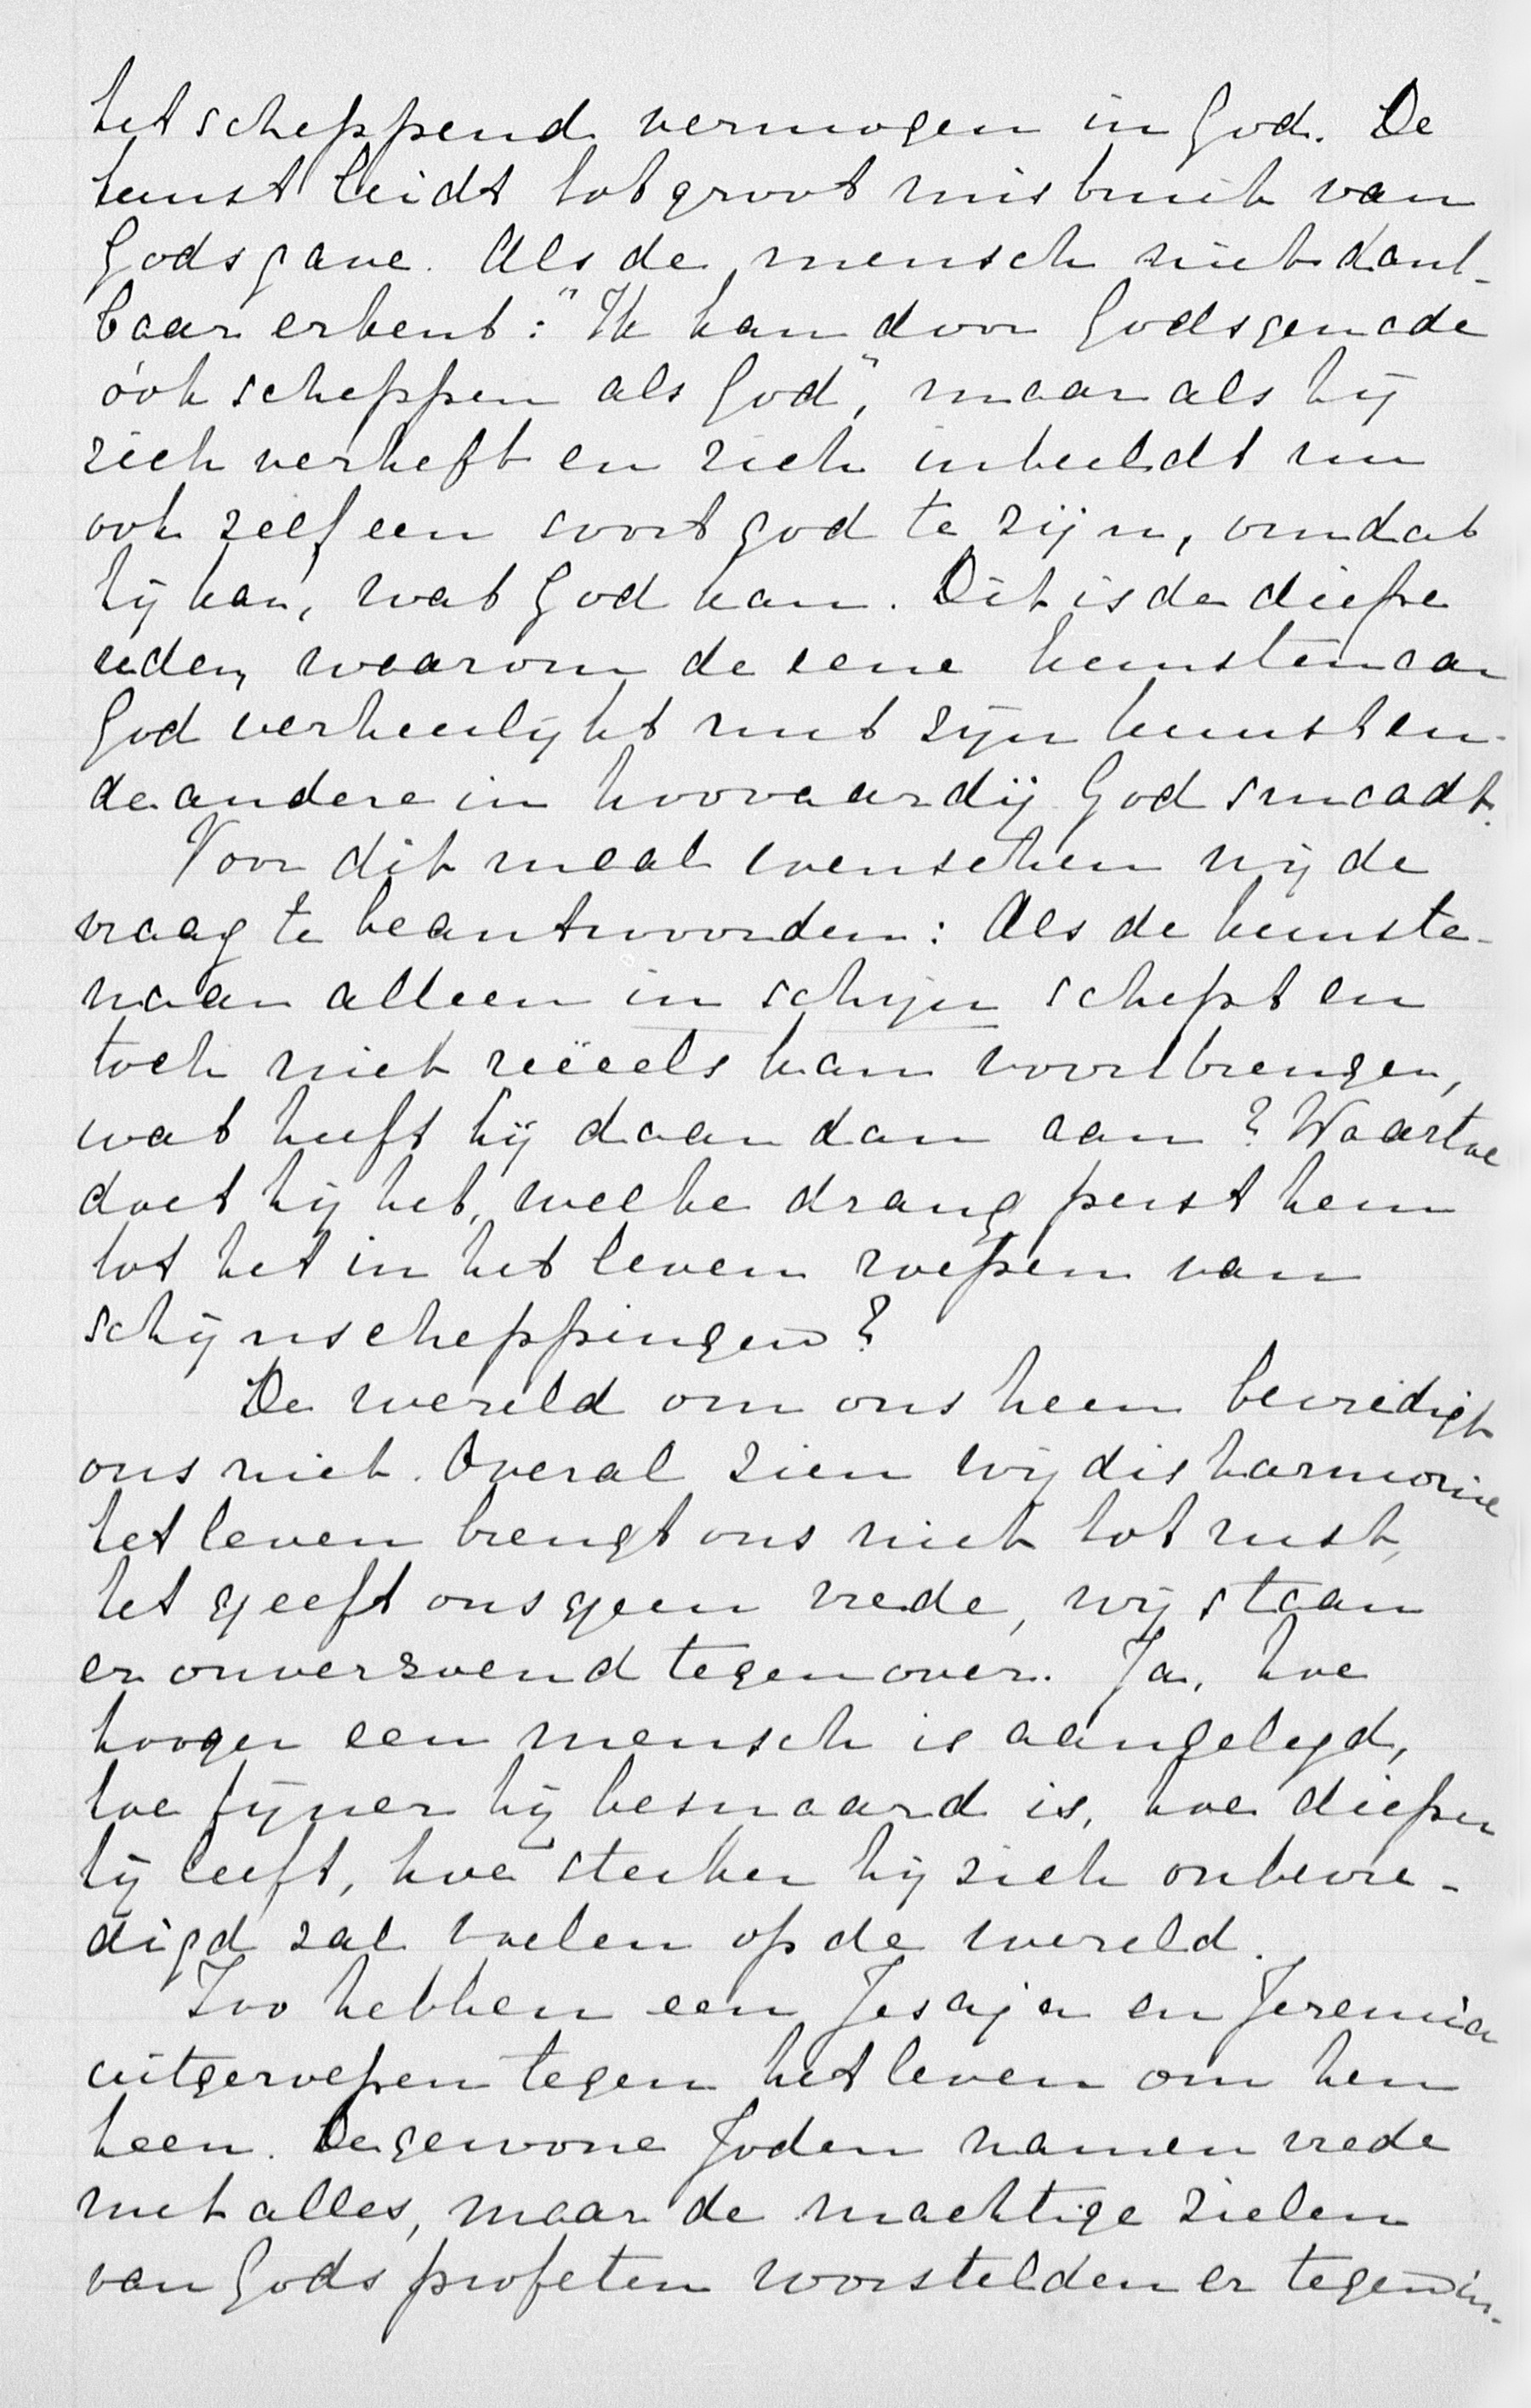 het scheppend vermogen in God. De
kunst leidt tot groot misbruik van
Gods gave. Als de mensch niet dank-
baar erkent: "Ik kan door Gods genade
óók scheppen als God", maar als hij
zich verheft en zich inbeeldt nu
ook zelf een soort god te zijn, omdat
hij kan, wat God kan. Dit is de diepe
reden, waarom de eene kunstenaar
God verheerlijkt met zijn kunst en
de andere in hoovaardij God smaadt.
Voor dit maal wenschen wij de
vraag te beantwoorden: Als de kunste-
naar alleen in schijn schept en
toch niet reëels kan voortbrengen,
wat heeft hij daar dan aan? Waartoe
doet hij het, welke drang perst hem
tot het in het leven roepen van
schijnscheppingen?
De wereld om ons heen bevredigt
ons niet. Overal zien wij disharmonie
het leven brengt ons niet tot rust,
het geeft ons geen vrede, wij staan
er onverzoend tegenover. Ja, hoe
hooger een mensch is aangelegd,
hoe fijner hij besnaard is, hoe dieper
hij leeft, hoe sterker hij zich onbevre-
digd zal voelen op de wereld.
Zoo hebben een Jesaja en Jeremia
uitgeroepen tegen het leven om hen
heen. De gewone Joden namen vrede
met alles, maar de machtige zielen
van Gods profeten worstelden er tegen in.